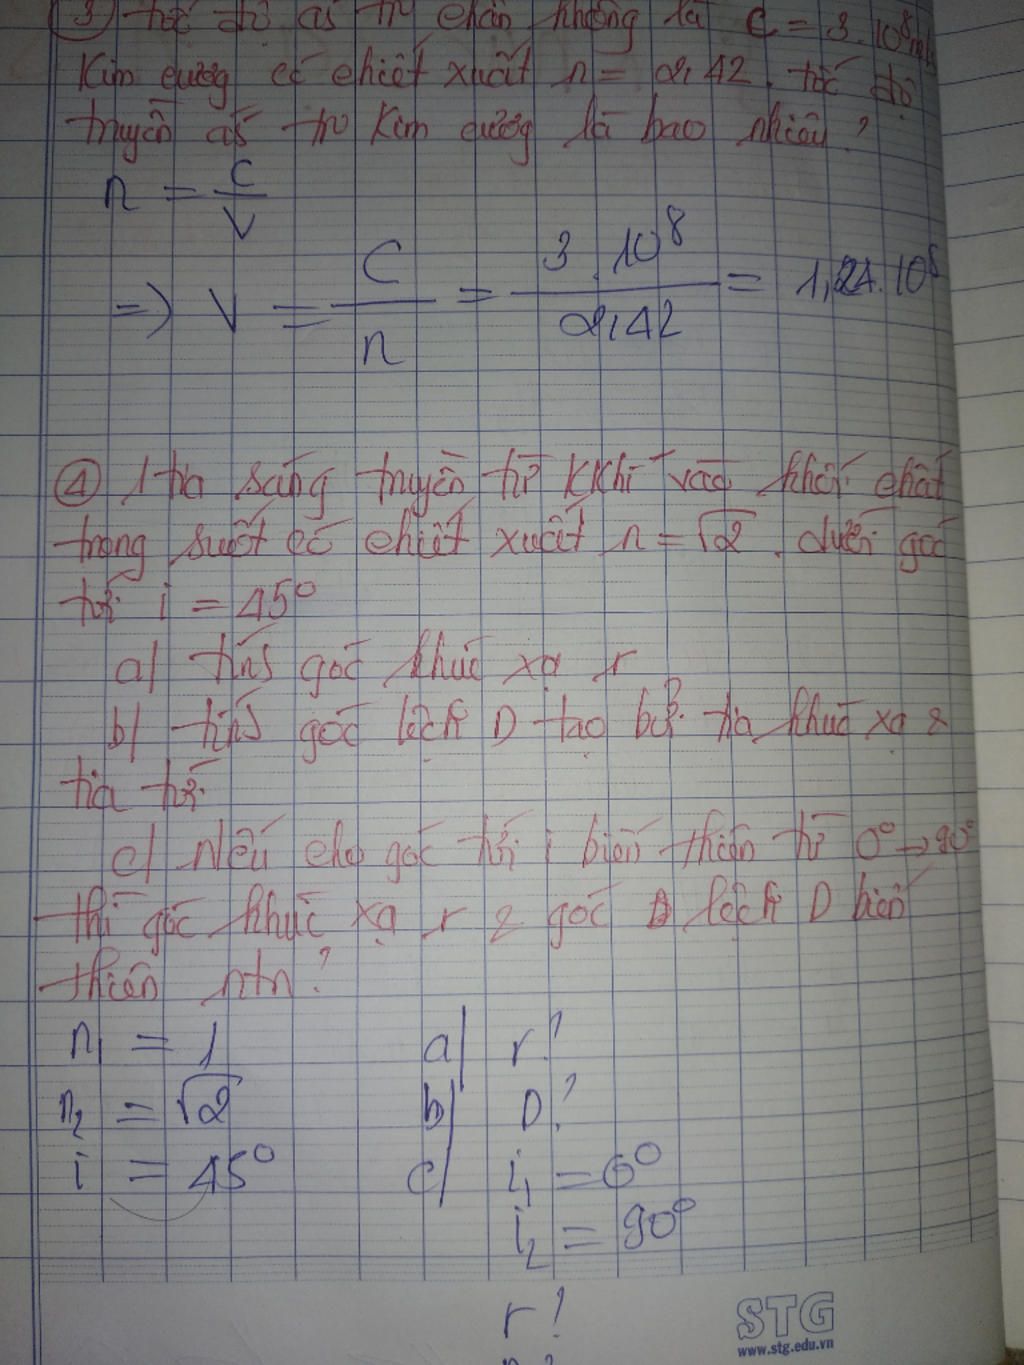 ③ tốc độ as tr chân không là c = 3.10⁸m/s
Kim cương có chiết xuất n = 2,42. tốc độ
truyền as tr kim cương là bao nhiêu?
n = c/v
=> v = c/n = 3.10⁸/2,42 = 1,24.10⁸
④ 1 tia sáng truyền từ kkhí vào khối chất
trong suốt có chiết xuất n = √2. dưới góc
tới i = 45°
a/ tính góc khúc xạ r
b/ tính góc lệch D tạo bởi tia khúc xạ &
tia tới
c/ Nếu cho góc tới i biến thiên từ 0° → 90°
thì góc khúc xạ r & góc lệch D biến
thiên ntn?
n₁ = 1 a/ r?
n₂ = √2 b/ D?
i = 45° c/ i₁ = 0°
i₂ = 90°
r?
STG
www.stg.edu.vn